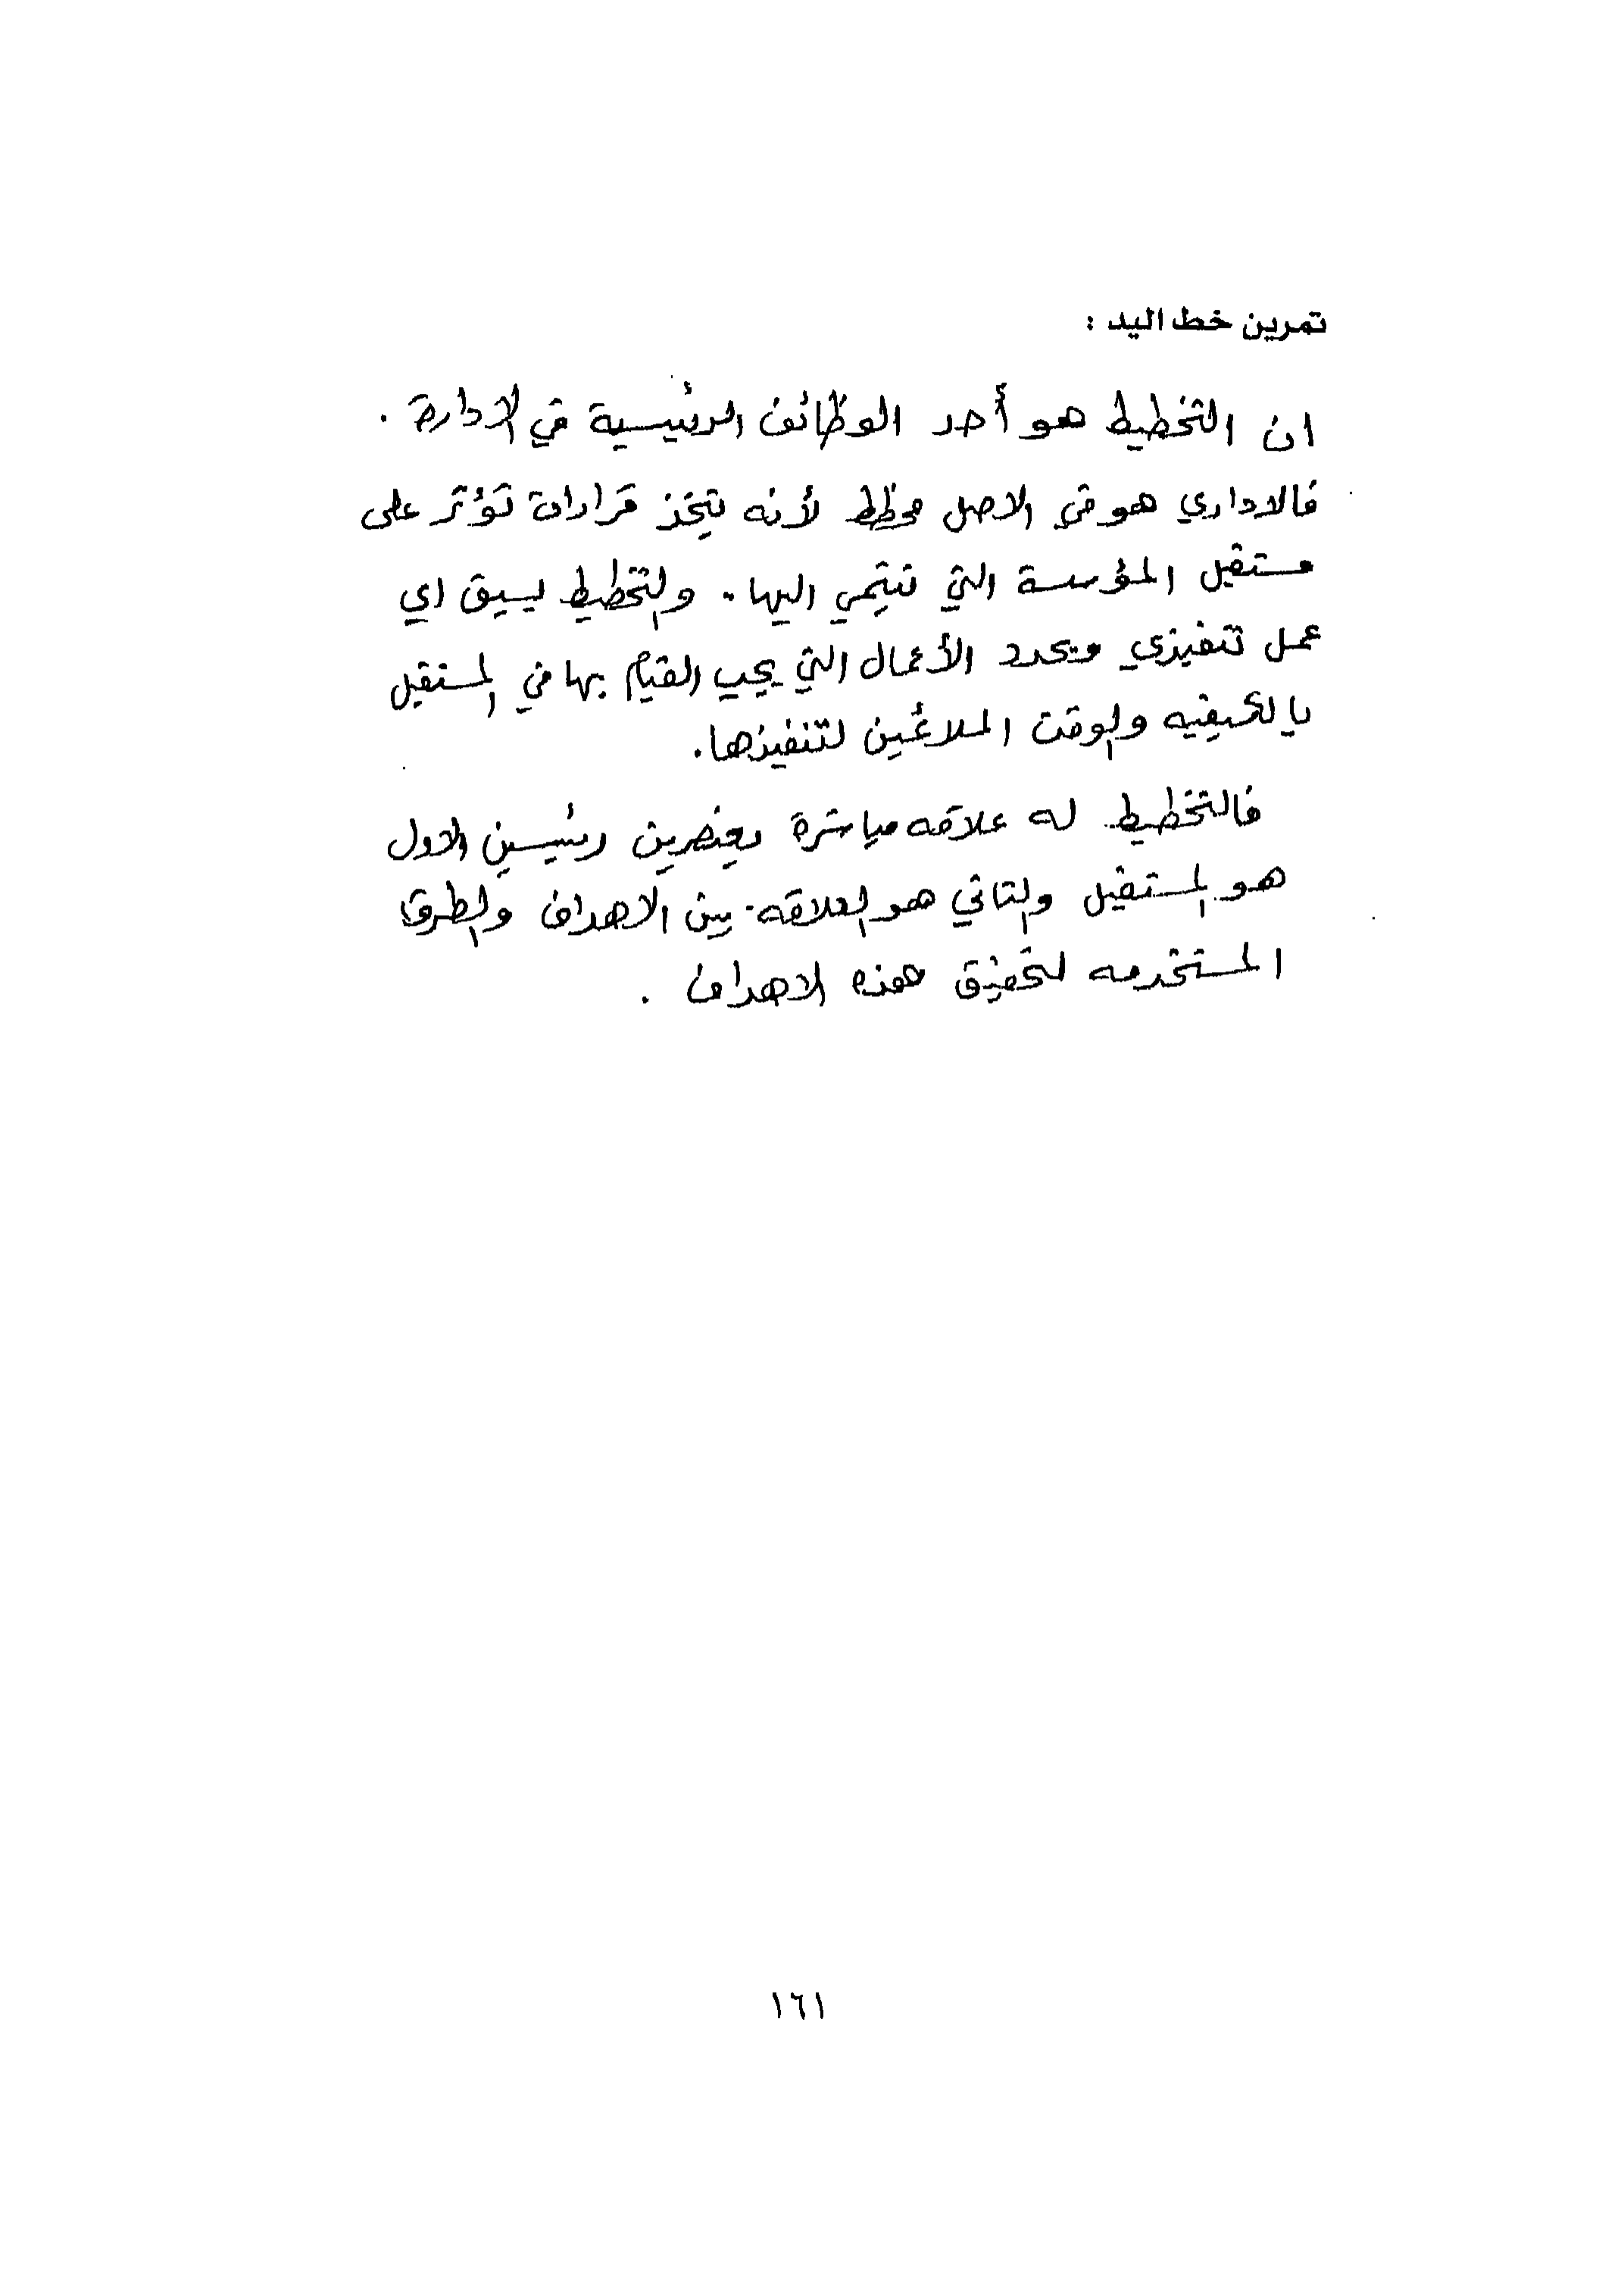 تمرين خط اليد :
ان التخطيط هو أحد الوظائف الرئيسية في الادارة .
فالاداري هو في الاصل مخطط لأنه يتخذ قرارات تؤثر على
مستقبل المؤسسة التي تنتمي اليها . والتخطيط يسبق اي
عمل تنفيذي ويحدد الأعمال التي يجب القيام بها في المستقبل
بالكيفيه والوقت الملائمين لتنفيذها .
فالتخطيط له علاقه مباشرة بعنصرين رئيسين الاول
هو المستقبل والثاني هو العلاقه بين الاهداف والطرق
المستخدمه لتحقيق هذه الاهداف .
١٦١